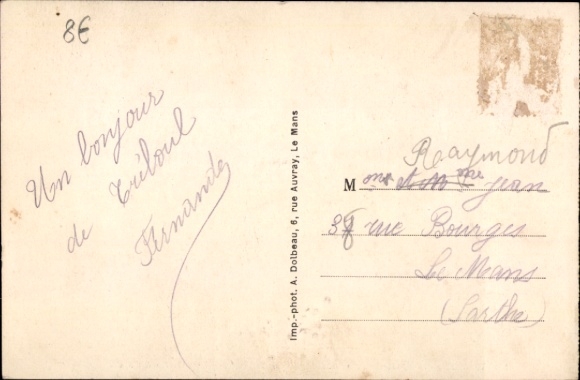 8€
Un bonjour
de Tréboul
Fernande
Imp.-phot. A. Dolbeau, 6, rue Auvray, Le Mans
Raymond
M Jean
rue Bourges
Le Mans
(Sarthe)